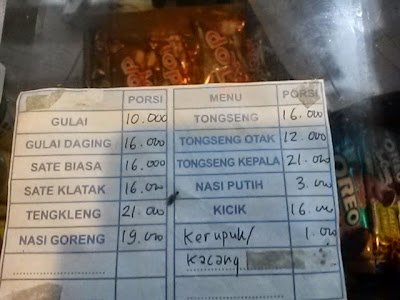 PORSI MENU PORSI
GULAI 10.000 TONGSENG 16.000
GULAI DAGING 16.000 TONGSENG OTAK 12.000
SATE BIASA 16.000 TONGSENG KEPALA 21.000
SATE KLATAK 16.000 NASI PUTIH 3.000
TENGKLENG 21.000 KICIK 16.000
NASI GORENG 19.000 Kerupuk/ 1.000
Kacang
OREO